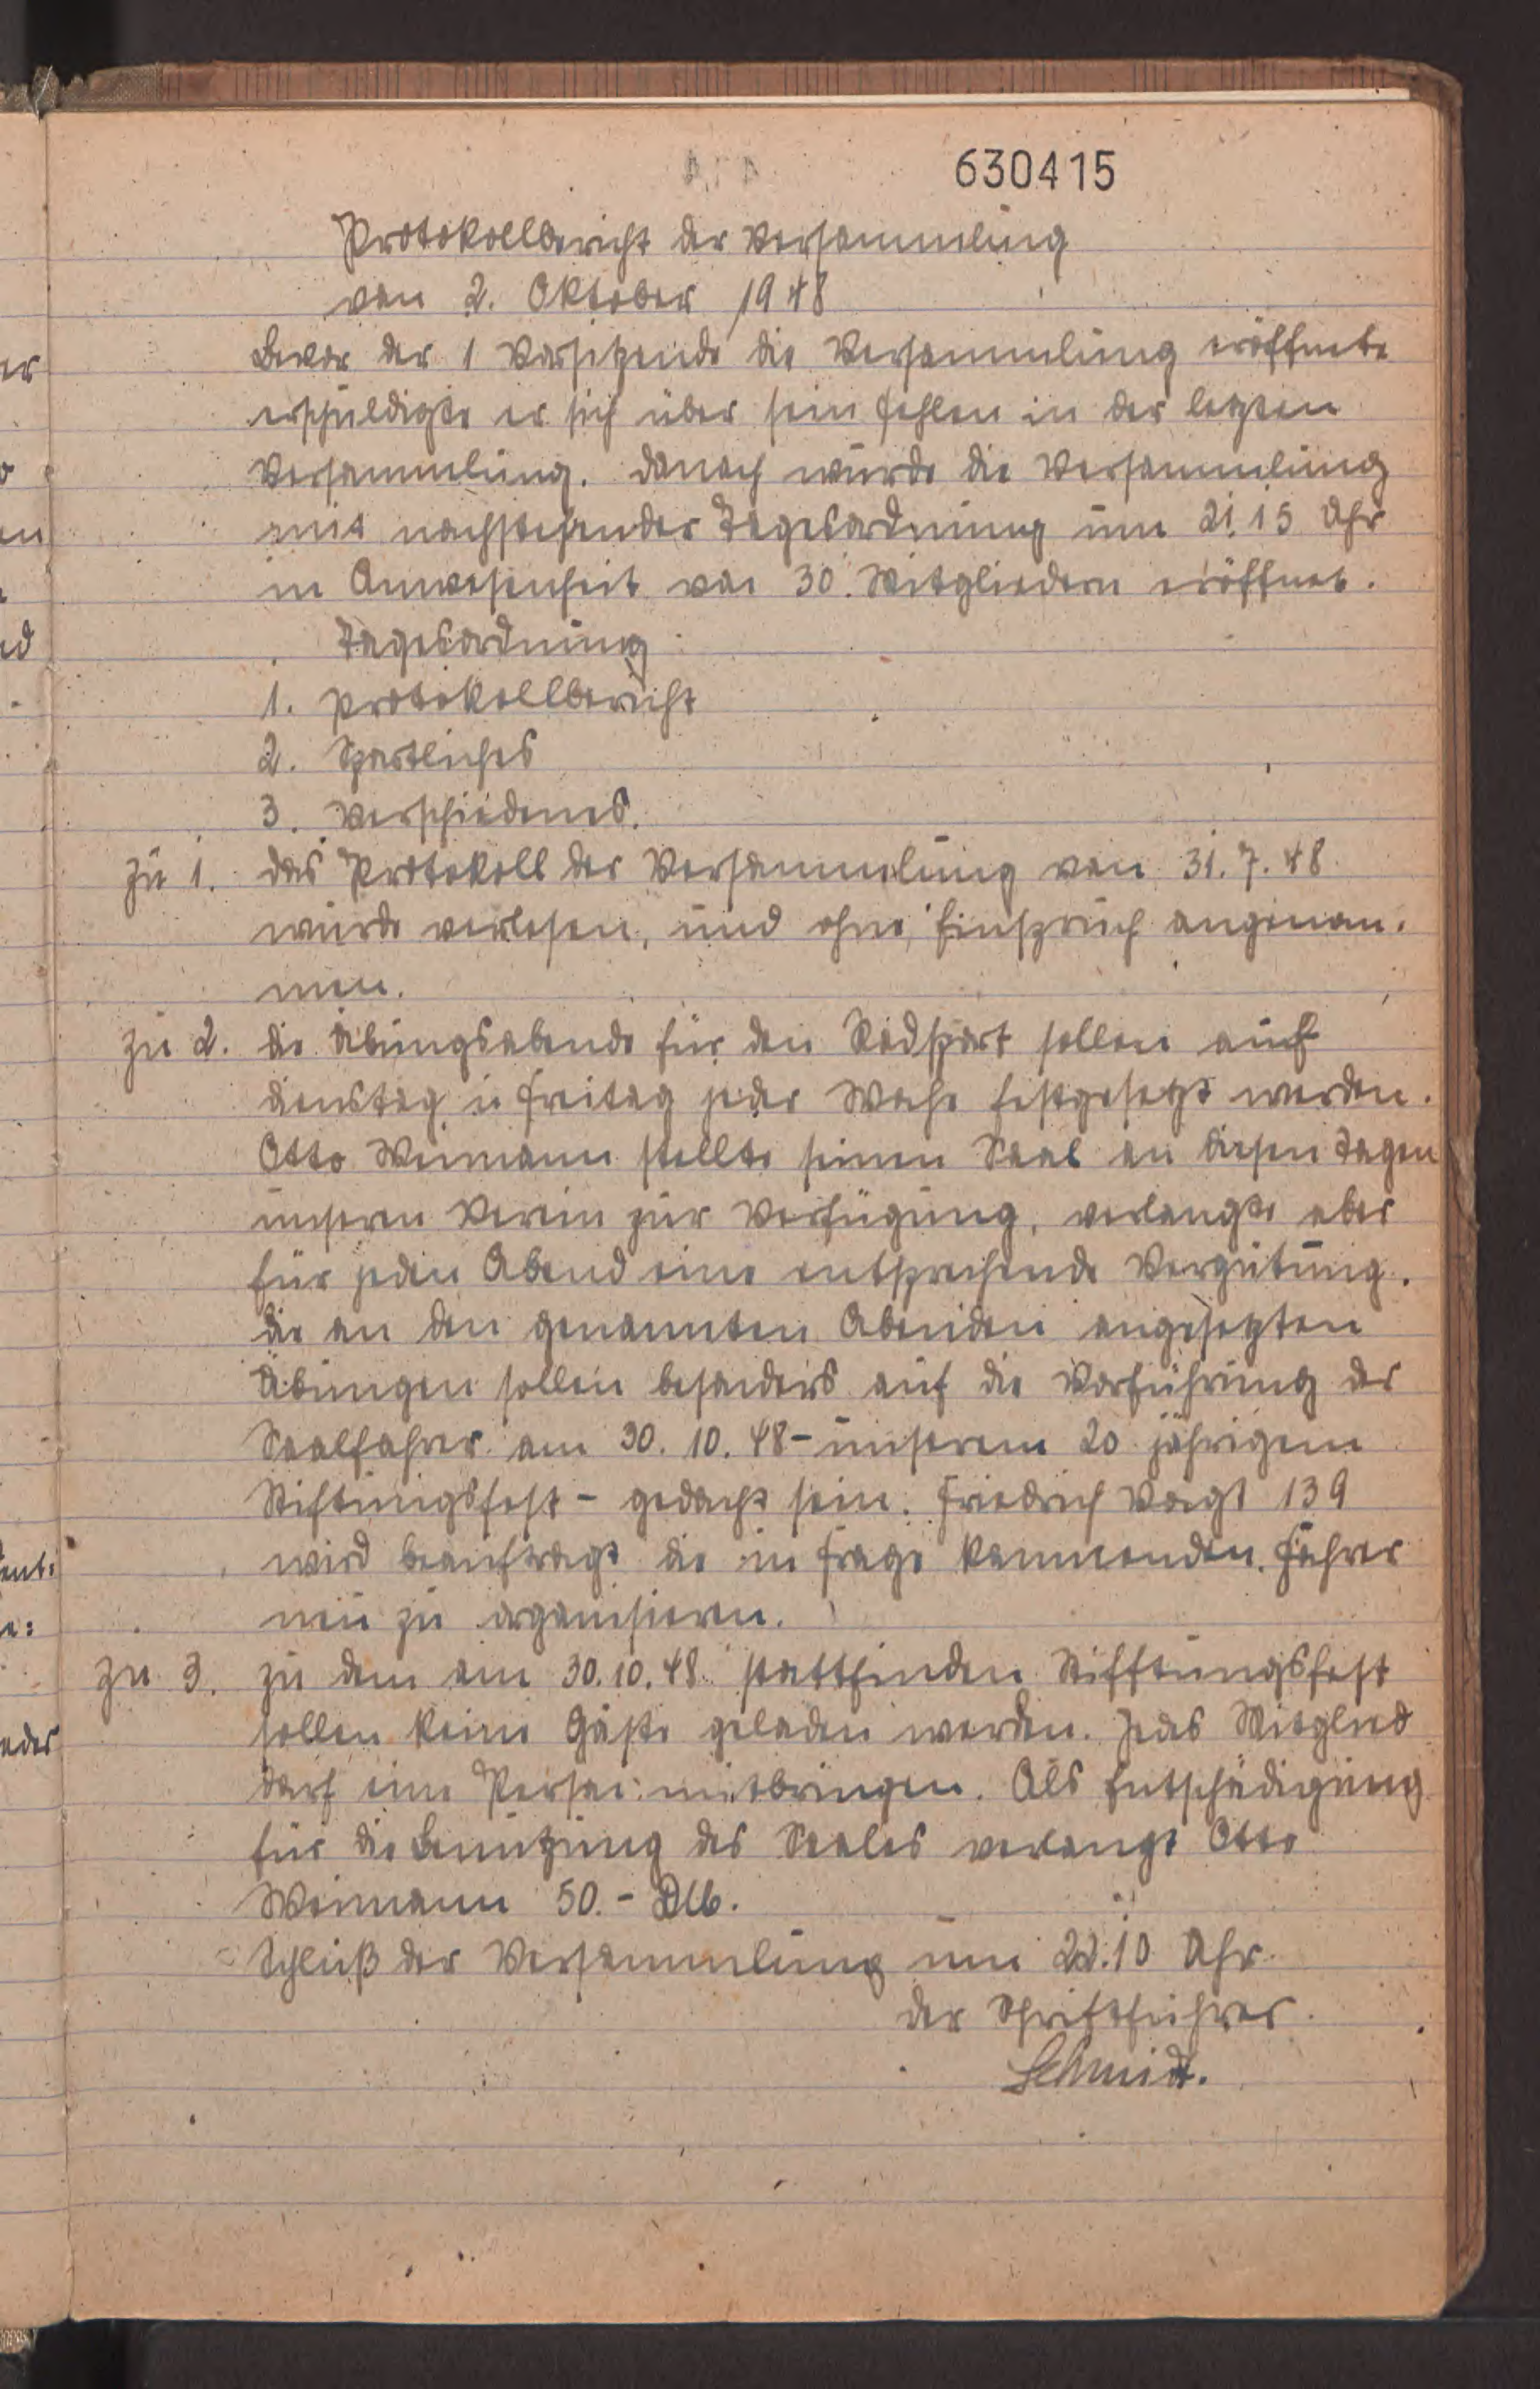 630415
Protokollbericht der Versammlung
von 2. Oktober 1948
Bevor der 1 Vorsitzende die Versammlung eröffnete
erschuldigte er sich über sein Fehlen in der letzten
Versammlung. Danach wurde die Versammlung
mit nachstehender Tagesordnung um 21.15 Uhr
in Anwesenheit von 30. Mitgliedern eröffnet.
Tagesordnung
1. Protokollbericht
2. Sportliches
3. Verschiedenes.
zu 1. das Protokoll der Versammlung von 31.7.48
wurde verlesen, und ohne Einspruch angenom-
men.
zu 2. die Übungsabende für den Radsport sollen auf
Dienstag u Freitag jeder Woche festgesetzt werden.
Otto Weimann stellte seinen Saal an diesen Tagen
unseren Verein zur Verfügung, verlangte aber
für jeden Abend eine entsprechende Vergütung.
die an den genannten Abenden angesetzten
Übungen sollen besonders auf die Vorführung der
Saalfahrer am 30. 10. 48 - unserem 20 jährigem
Stiftungsfest - gedacht sein. Friedrich Voigt 139
wird beauftragt die in Frage kommenden Fahrer
neu zu organisieren.
zu 3. zu dem am 30.10.48 stattfinden Stifftungsfest
sollen keine Gäste geladen werden. Jedes Mitglied
darf eine Person mitbringen. Als Entschädigung
für die Benutzung des Saales verlangt Otto
Weimann 50.- DM.
Schluß der Versammlung um 22.10 Uhr.
der Schriftführer.
Schmidt.